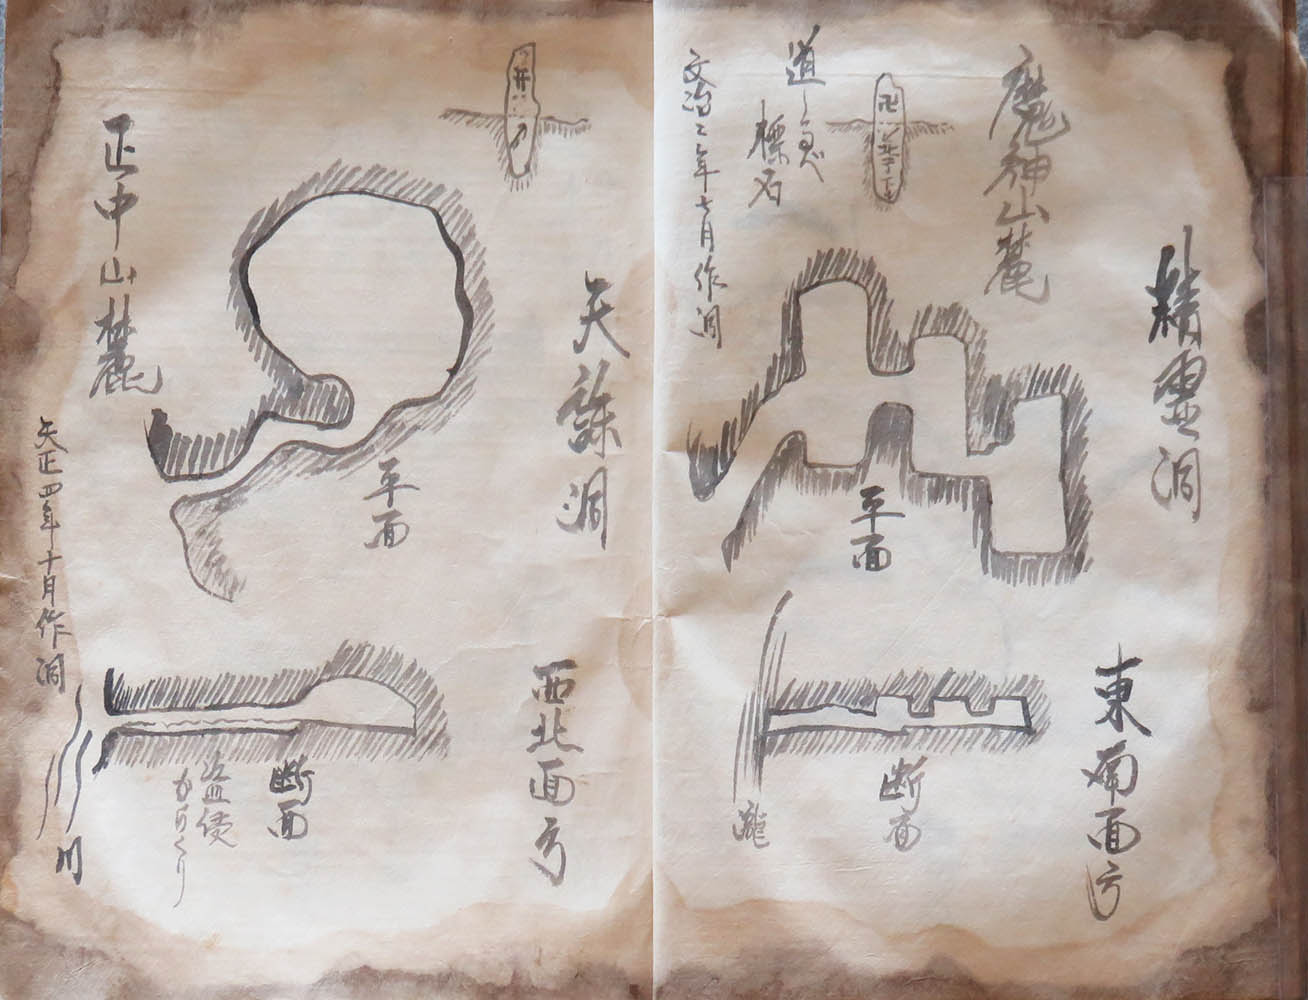 精霊洞
魔神山麓
道しるべ
標石
卍
文治二年七月作洞
平面
東南面ス
断面
滝
天誅洞
平面
正中山麓
天正四年十月作洞
西北面ス
断面
からくり
川